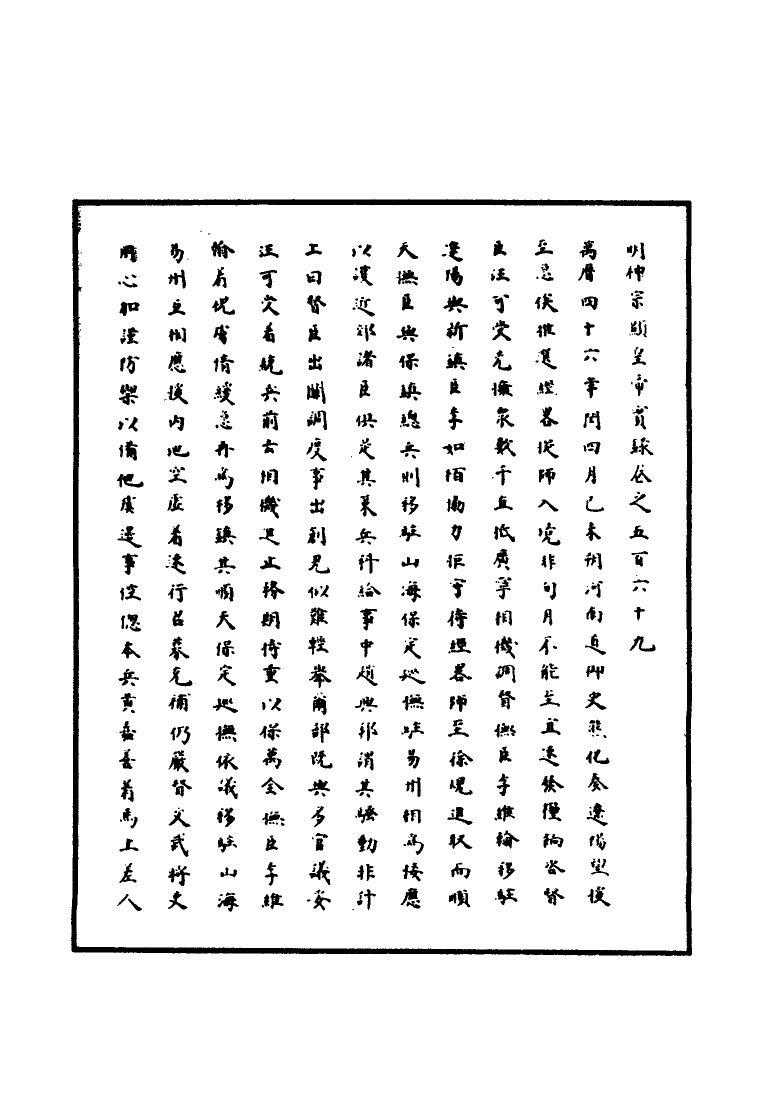 明神宗顯皇帝實錄卷之五百六十九
萬曆四十六年閏四月己未朔河南道御史熊化奏遼陽望援
至急候推選經略從師入境非旬月不能至宜速發糧餉咨督
臣汪可受先撫眾數千直抵廣寧相機調督撫臣李維翰移駐
遼陽與新鎮臣李如栢協力拒守待經略師至徐觀進取而順
天撫臣與保鎮總兵則移駐山海保定巡撫駐易州相為接應
以護近郊諸臣俱是其策兵科給事中趙興邦謂其騷動非計
上曰督臣出關調度事出創見似難輕舉爾部既與多官議妥
汪可受着統兵前去相機進止務期持重以保萬全撫臣李維
翰着視虜情緩急再為移鎮其順天保定巡撫依議移駐山海
易州互相應援內地空虛着速行召募充補仍嚴督文武將吏
用心加謹防禦以備他虞邊事倥傯本兵黃嘉善着馬上差人